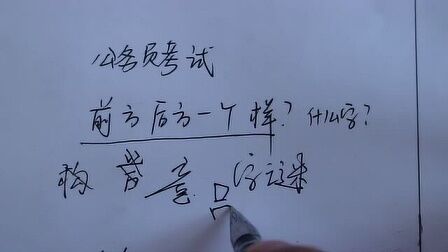 公务员考试
前方后方一个样？什么字？
构 音 意 吕 字谜